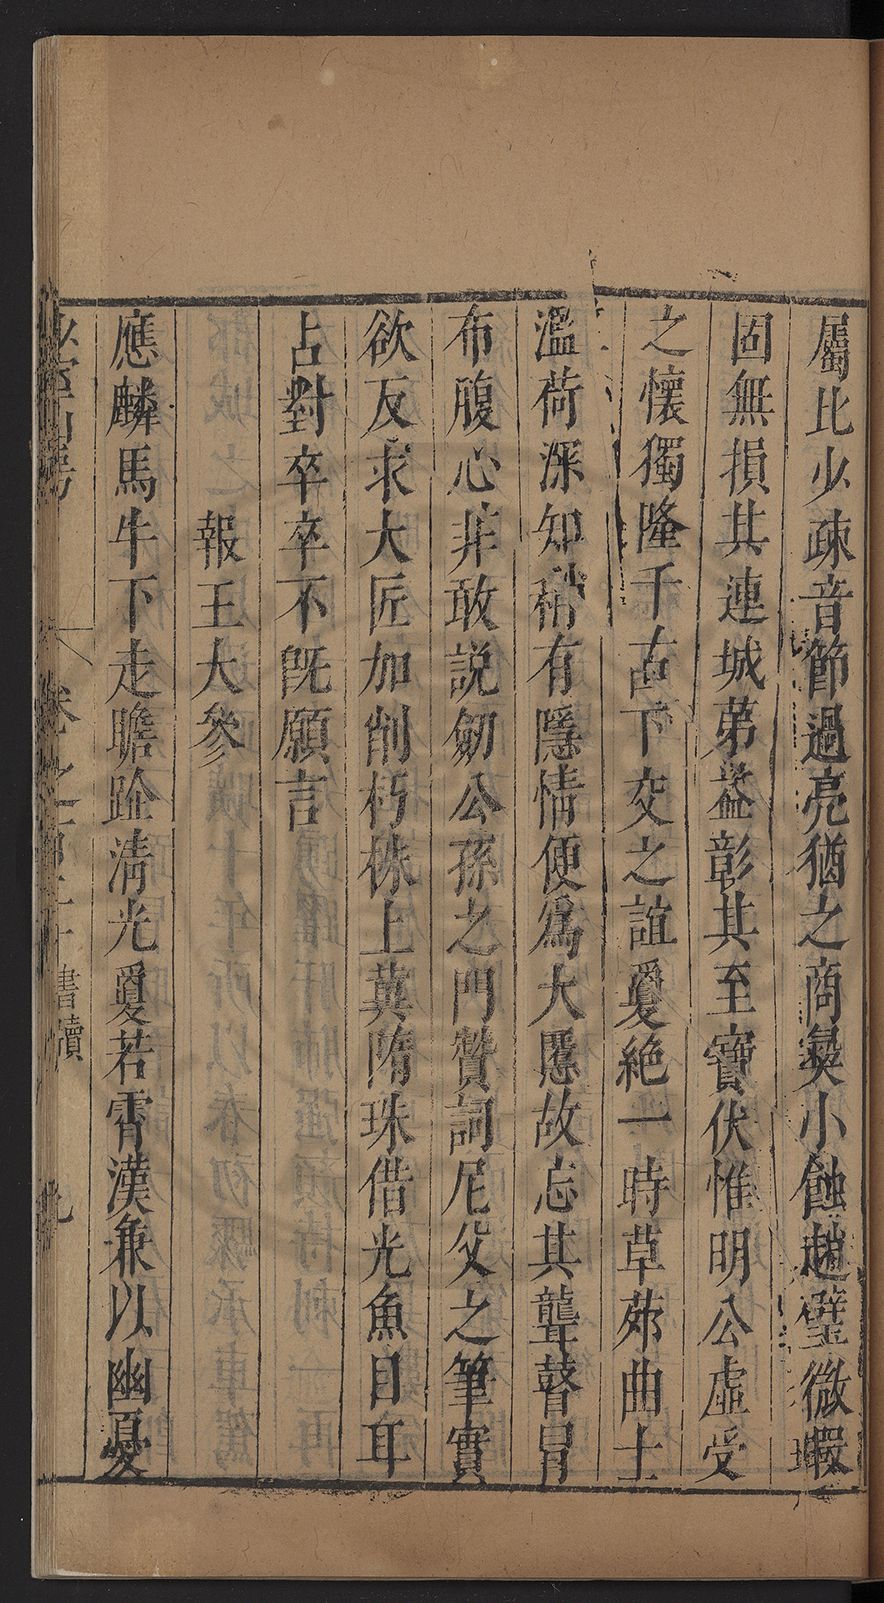 屬比少疎音節過亮猶之商彝小蝕趙璧微瑕
固無損其連城弟益彰其至寶伏惟明公虛受
之懷獨隆千古下交之誼敻絶一時草茆曲士
濫荷深知稍有隱情便爲大慝故忘其聾瞽冒
布腹心非敢説劒公孫之門贊詞尼父之筆實
欲反求大匠加削朽株上冀隋珠借光魚目耳
占對卒卒不旣願言
報王大參
應麟馬牛下走瞻跂清光敻若霄漢兼以幽憂
少室山房
卷之一百二十
書牘
九